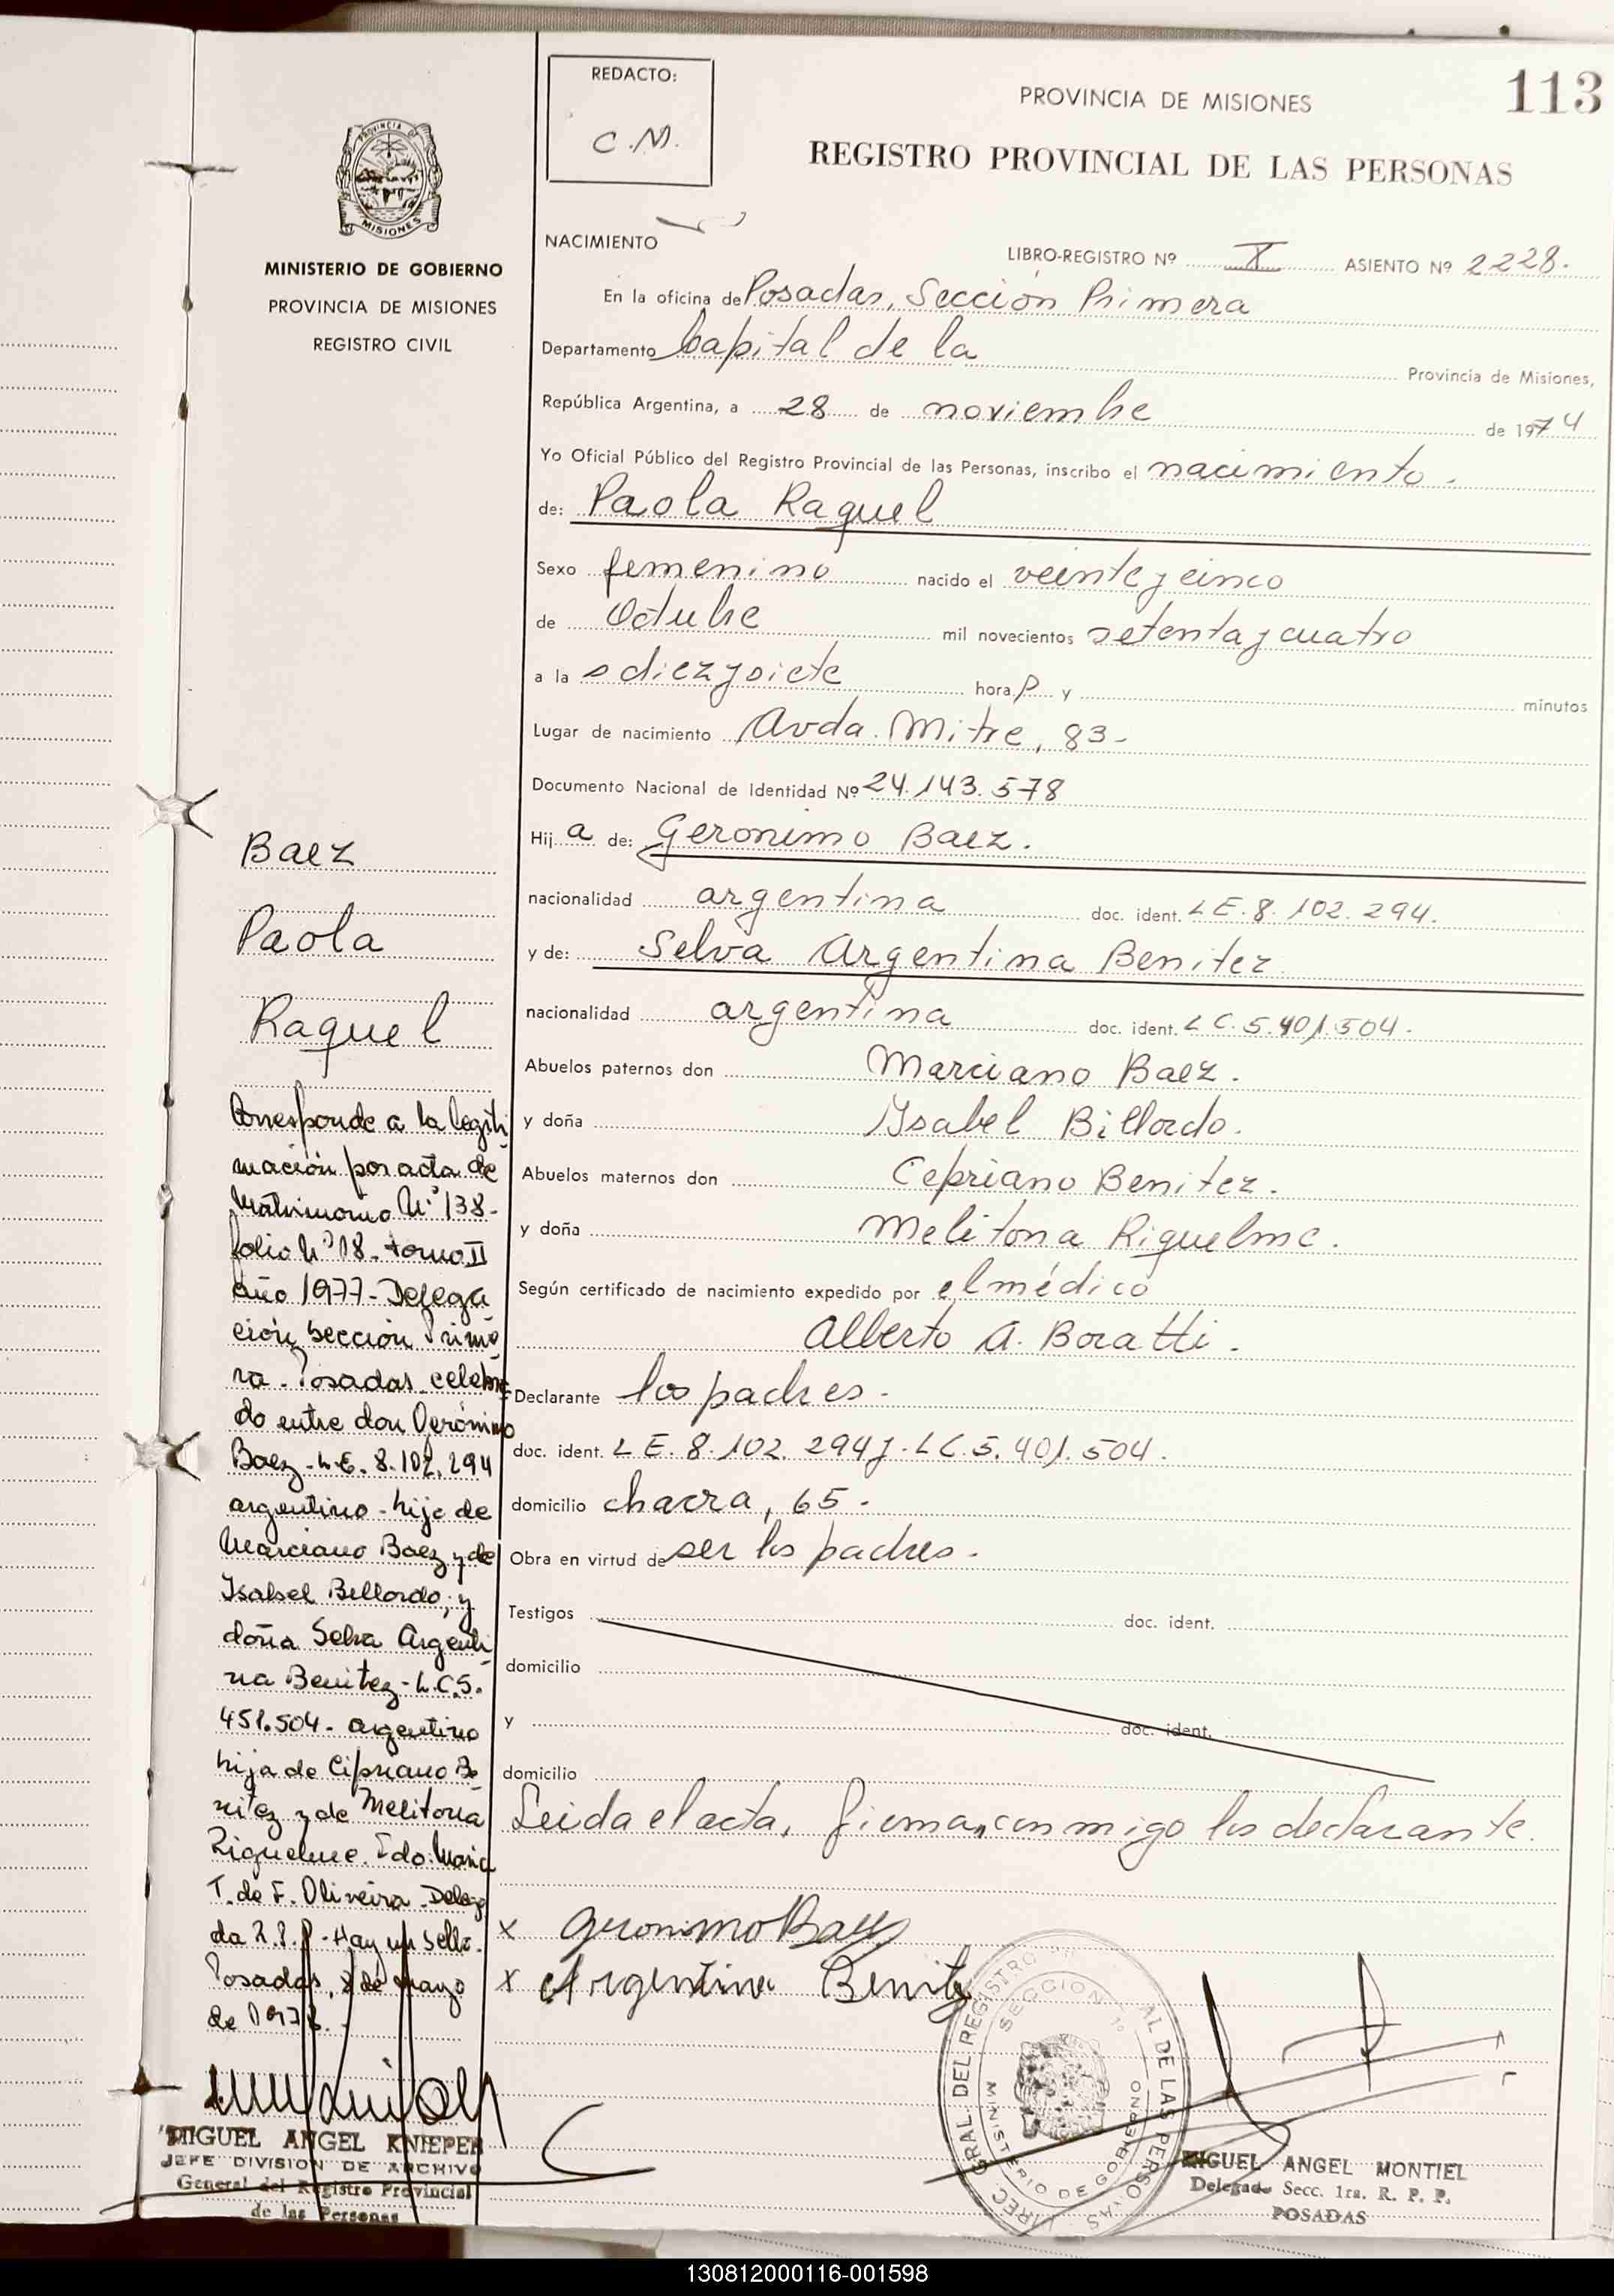 113
REDACTO:
C.M.
PROVINCIA DE MISIONES
REGISTRO PROVINCIAL DE LAS PERSONAS
PROVINCIA DE
MISIONES
MINISTERIO DE GOBIERNO
PROVINCIA DE MISIONES
REGISTRO CIVIL
NACIMIENTO
LIBRO-REGISTRO Nº X ASIENTO Nº 2228.
En la oficina de Posadas, Sección Primera
Departamento Capital de la Provincia de Misiones,
República Argentina, a 28 de noviembre de 1974
Yo Oficial Público del Registro Provincial de las Personas, inscribo el nacimiento.
de: Paola Raquel
Sexo femenino nacido el veinte y cinco
de Octubre mil novecientos setenta y cuatro
a la s diez y siete hora s y minutos
Lugar de nacimiento Avda. Mitre, 83-
Documento Nacional de Identidad Nº 24.143.578
Hij a de: Geronimo Baez.
nacionalidad argentina doc. ident. LE.8.102.294.
y de: Selva Argentina Benitez
nacionalidad argentina doc. ident. LC.5.401.504.
Abuelos paternos don Marciano Baez.
y doña Ysabel Billordo.
Abuelos maternos don Cepriano Benitez.
y doña Melitona Riquelme.
Según certificado de nacimiento expedido por el médico
Alberto A. Boratti.
Declarante los padres.
doc. ident. LE.8.102.294 y LC.5.401.504.
domicilio chacra, 65.
Obra en virtud de ser los padres.
Testigos doc. ident.
domicilio
y doc. ident.
domicilio
Leida el acta, firman conmigo los declarante.
x Geronimo Baez
x Argentina Benitez
Baez
Paola
Raquel
Corresponde a la legiti
mación por acta de
Matrimonio Nº 138-
folio Nº 18- tomo II
año 1977- Delega
ción Sección Prime
ra- Posadas celebra
do entre don Gerónimo
Baez- L.E. 8.102.294
argentino- hijo de
Marciano Baez y de
Isabel Billordo; y
doña Selva Argenti
na Benitez- L.C.5.
451.504- argentino
hija de Cipriano Be
nitez y de Melitona
Riquelme. Fdo: Maria
T. de F. Oliveira- Delega
da R.P.P- Hay un sello-
Posadas, 8 de mayo
de 1978.-
MIGUEL ANGEL KNIEPER
JEFE DIVISION DE ARCHIVO
General del Registro Provincial
de las Personas
SECCION 1º
MINISTERIO DE GOBIERNO
MIGUEL ANGEL MONTIEL
Delegado Secc. 1ra. R. P. P.
POSADAS
130812000116-001598